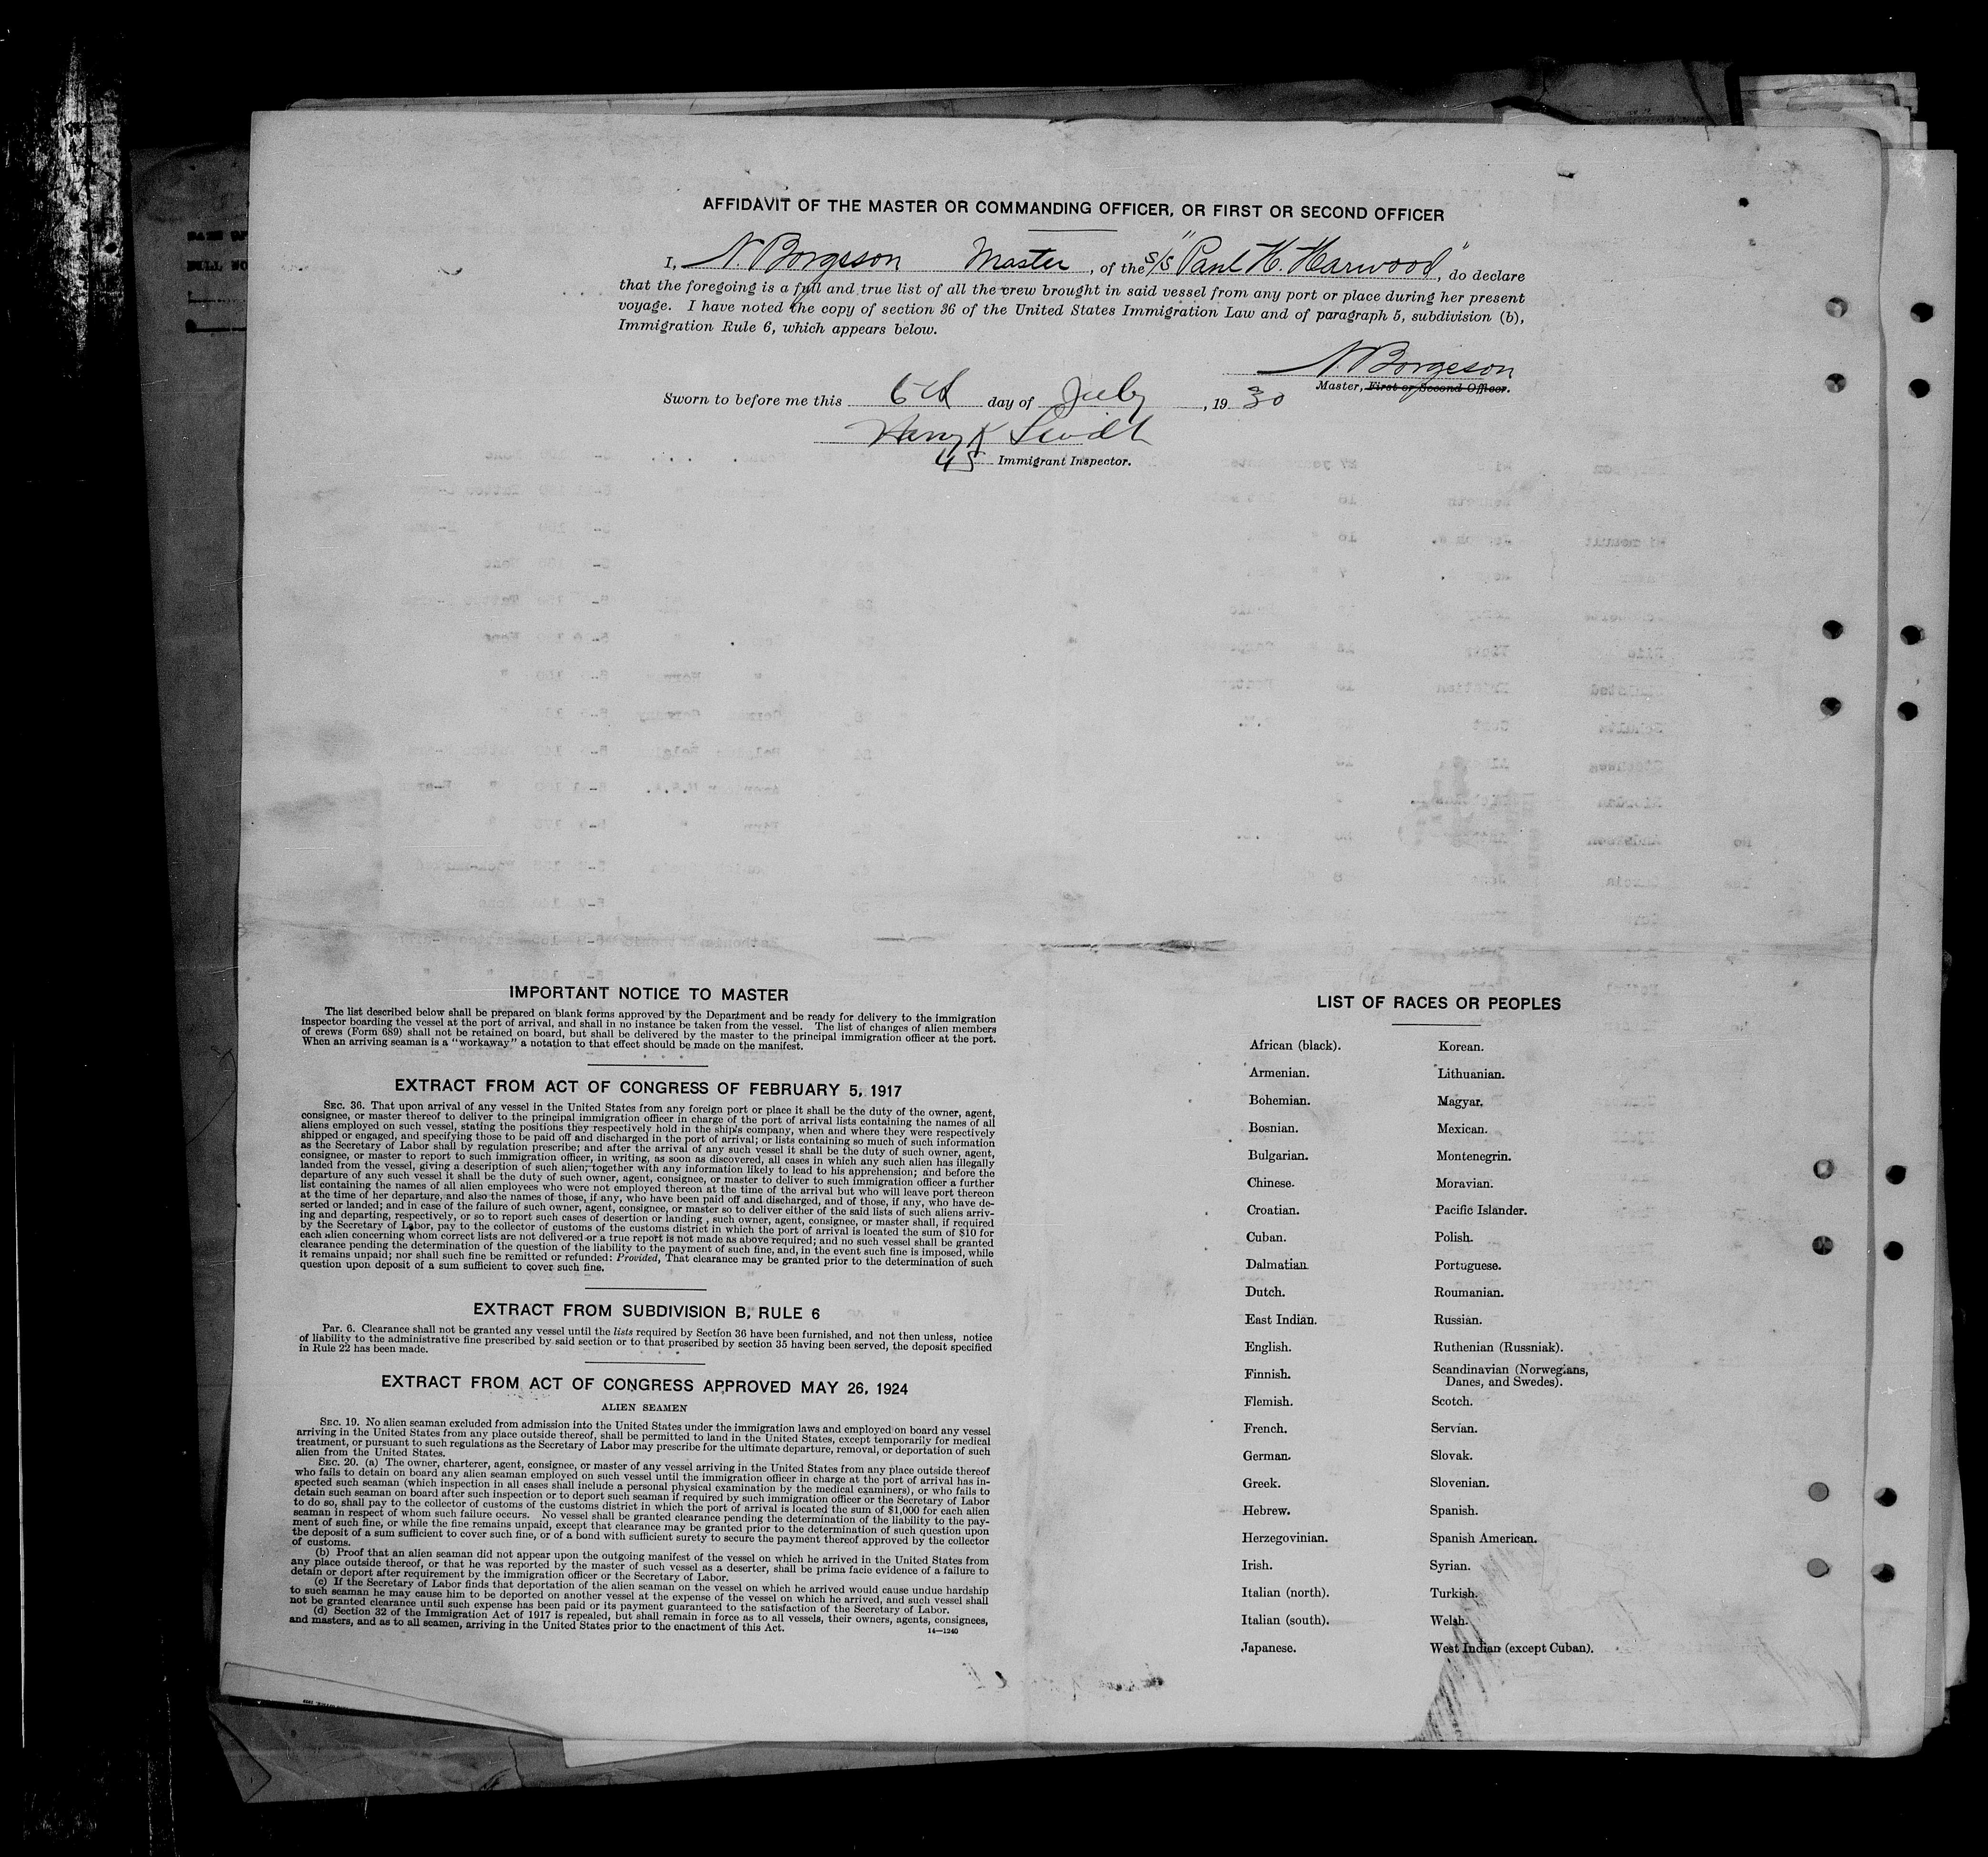 AFFIDAVIT OF THE MASTER OR COMMANDING OFFICER, OR FIRST OR SECOND OFFICER
I, N. Borgeson Master, of the S/S "Paul H. Harwood", do declare
that the foregoing is a full and true list of all the crew brought in said vessel from any port or place during her present
voyage. I have noted the copy of section 36 of the United States Immigration Law and of paragraph 5, subdivision (b),
Immigration Rule 6, which appears below.
N. Borgeson
Master, First or Second Officer.
Sworn to before me this 6th day of July, 1930
Immigrant Inspector.
IMPORTANT NOTICE TO MASTER
The list described below shall be prepared on blank forms approved by the Department and be ready for delivery to the immigration
inspector boarding the vessel at the port of arrival, and shall in no instance be taken from the vessel. The list of changes of alien members
of crews (Form 689) shall not be retained on board, but shall be delivered by the master to the principal immigration officer at the port.
When an arriving seaman is a "workaway" a notation to that effect should be made on the manifest.
EXTRACT FROM ACT OF CONGRESS OF FEBRUARY 5, 1917
SEC. 36. That upon arrival of any vessel in the United States from any foreign port or place it shall be the duty of the owner, agent,
consignee, or master thereof to deliver to the principal immigration officer in charge of the port of arrival lists containing the names of all
aliens employed on such vessel, stating the positions they respectively hold in the ship's company, when and where they were respectively
shipped or engaged, and specifying those to be paid off and discharged in the port of arrival; or lists containing so much of such information
as the Secretary of Labor shall by regulation prescribe; and after the arrival of any such vessel it shall be the duty of such owner, agent,
consignee, or master to report to such immigration officer, in writing, as soon as discovered, all cases in which any such alien has illegally
landed from the vessel, giving a description of such alien, together with any information likely to lead to his apprehension; and before the
departure of any such vessel it shall be the duty of such owner, agent, consignee, or master to deliver to such immigration officer a further
list containing the names of all alien employees who were not employed thereon at the time of the arrival but who will leave port thereon
at the time of her departure, and also the names of those, if any, who have been paid off and discharged, and of those, if any, who have de-
serted or landed; and in case of the failure of such owner, agent, consignee, or master so to deliver either of the said lists of such aliens arriv-
ing and departing, respectively, or so to report such cases of desertion or landing, such owner, agent, consignee, or master shall, if required
by the Secretary of Labor, pay to the collector of customs of the customs district in which the port of arrival is located the sum of $10 for
each alien concerning whom correct lists are not delivered or a true report is not made as above required; and no such vessel shall be granted
clearance pending the determination of the question of the liability to the payment of such fine, and, in the event such fine is imposed, while
it remains unpaid; nor shall such fine be remitted or refunded: Provided, That clearance may be granted prior to the determination of such
question upon deposit of a sum sufficient to cover such fine.
EXTRACT FROM SUBDIVISION B, RULE 6
PAR. 6. Clearance shall not be granted any vessel until the lists required by Section 36 have been furnished, and not then unless, notice
of liability to the administrative fine prescribed by said section or to that prescribed by section 35 having been served, the deposit specified
in Rule 22 has been made.
EXTRACT FROM ACT OF CONGRESS APPROVED MAY 26, 1924
ALIEN SEAMEN
SEC. 19. No alien seaman excluded from admission into the United States under the immigration laws and employed on board any vessel
arriving in the United States from any place outside thereof, shall be permitted to land in the United States, except temporarily for medical
treatment, or pursuant to such regulations as the Secretary of Labor may prescribe for the ultimate departure, removal, or deportation of such
alien from the United States.
SEC. 20. (a) The owner, charterer, agent, consignee, or master of any vessel arriving in the United States from any place outside thereof
who fails to detain on board any alien seaman employed on such vessel until the immigration officer in charge at the port of arrival has in-
spected such seaman (which inspection in all cases shall include a personal physical examination by the medical examiners), or who fails to
detain such seaman on board after such inspection or to deport such seaman if required by such immigration officer or the Secretary of Labor
to do so, shall pay to the collector of customs of the customs district in which the port of arrival is located the sum of $1,000 for each alien
seaman in respect of whom such failure occurs. No vessel shall be granted clearance pending the determination of the liability to the pay-
ment of such fine, or while the fine remains unpaid, except that clearance may be granted prior to the determination of such question upon
the deposit of a sum sufficient to cover such fine, or of a bond with sufficient surety to secure the payment thereof approved by the collector
of customs.
(b) Proof that an alien seaman did not appear upon the outgoing manifest of the vessel on which he arrived in the United States from
any place outside thereof, or that he was reported by the master of such vessel as a deserter, shall be prima facie evidence of a failure to
detain or deport after requirement by the immigration officer or the Secretary of Labor.
(c) If the Secretary of Labor finds that deportation of the alien seaman on the vessel on which he arrived would cause undue hardship
to such seaman he may cause him to be deported on another vessel at the expense of the vessel on which he arrived, and such vessel shall
not be granted clearance until such expense has been paid or its payment guaranteed to the satisfaction of the Secretary of Labor.
(d) Section 32 of the Immigration Act of 1917 is repealed, but shall remain in force as to all vessels, their owners, agents, consignees,
and masters, and as to all seamen, arriving in the United States prior to the enactment of this Act.
14—1240
LIST OF RACES OR PEOPLES
African (black).
Armenian.
Bohemian.
Bosnian.
Bulgarian.
Chinese.
Croatian.
Cuban.
Dalmatian.
Dutch.
East Indian.
English.
Finnish.
Flemish.
French.
German.
Greek.
Hebrew.
Herzegovinian.
Irish.
Italian (north).
Italian (south).
Japanese.
Korean.
Lithuanian.
Magyar.
Mexican.
Montenegrin.
Moravian.
Pacific Islander.
Polish.
Portuguese.
Roumanian.
Russian.
Ruthenian (Russniak).
Scandinavian (Norwegians,
Danes, and Swedes).
Scotch.
Servian.
Slovak.
Slovenian.
Spanish.
Spanish American.
Syrian.
Turkish.
Welsh.
West Indian (except Cuban).